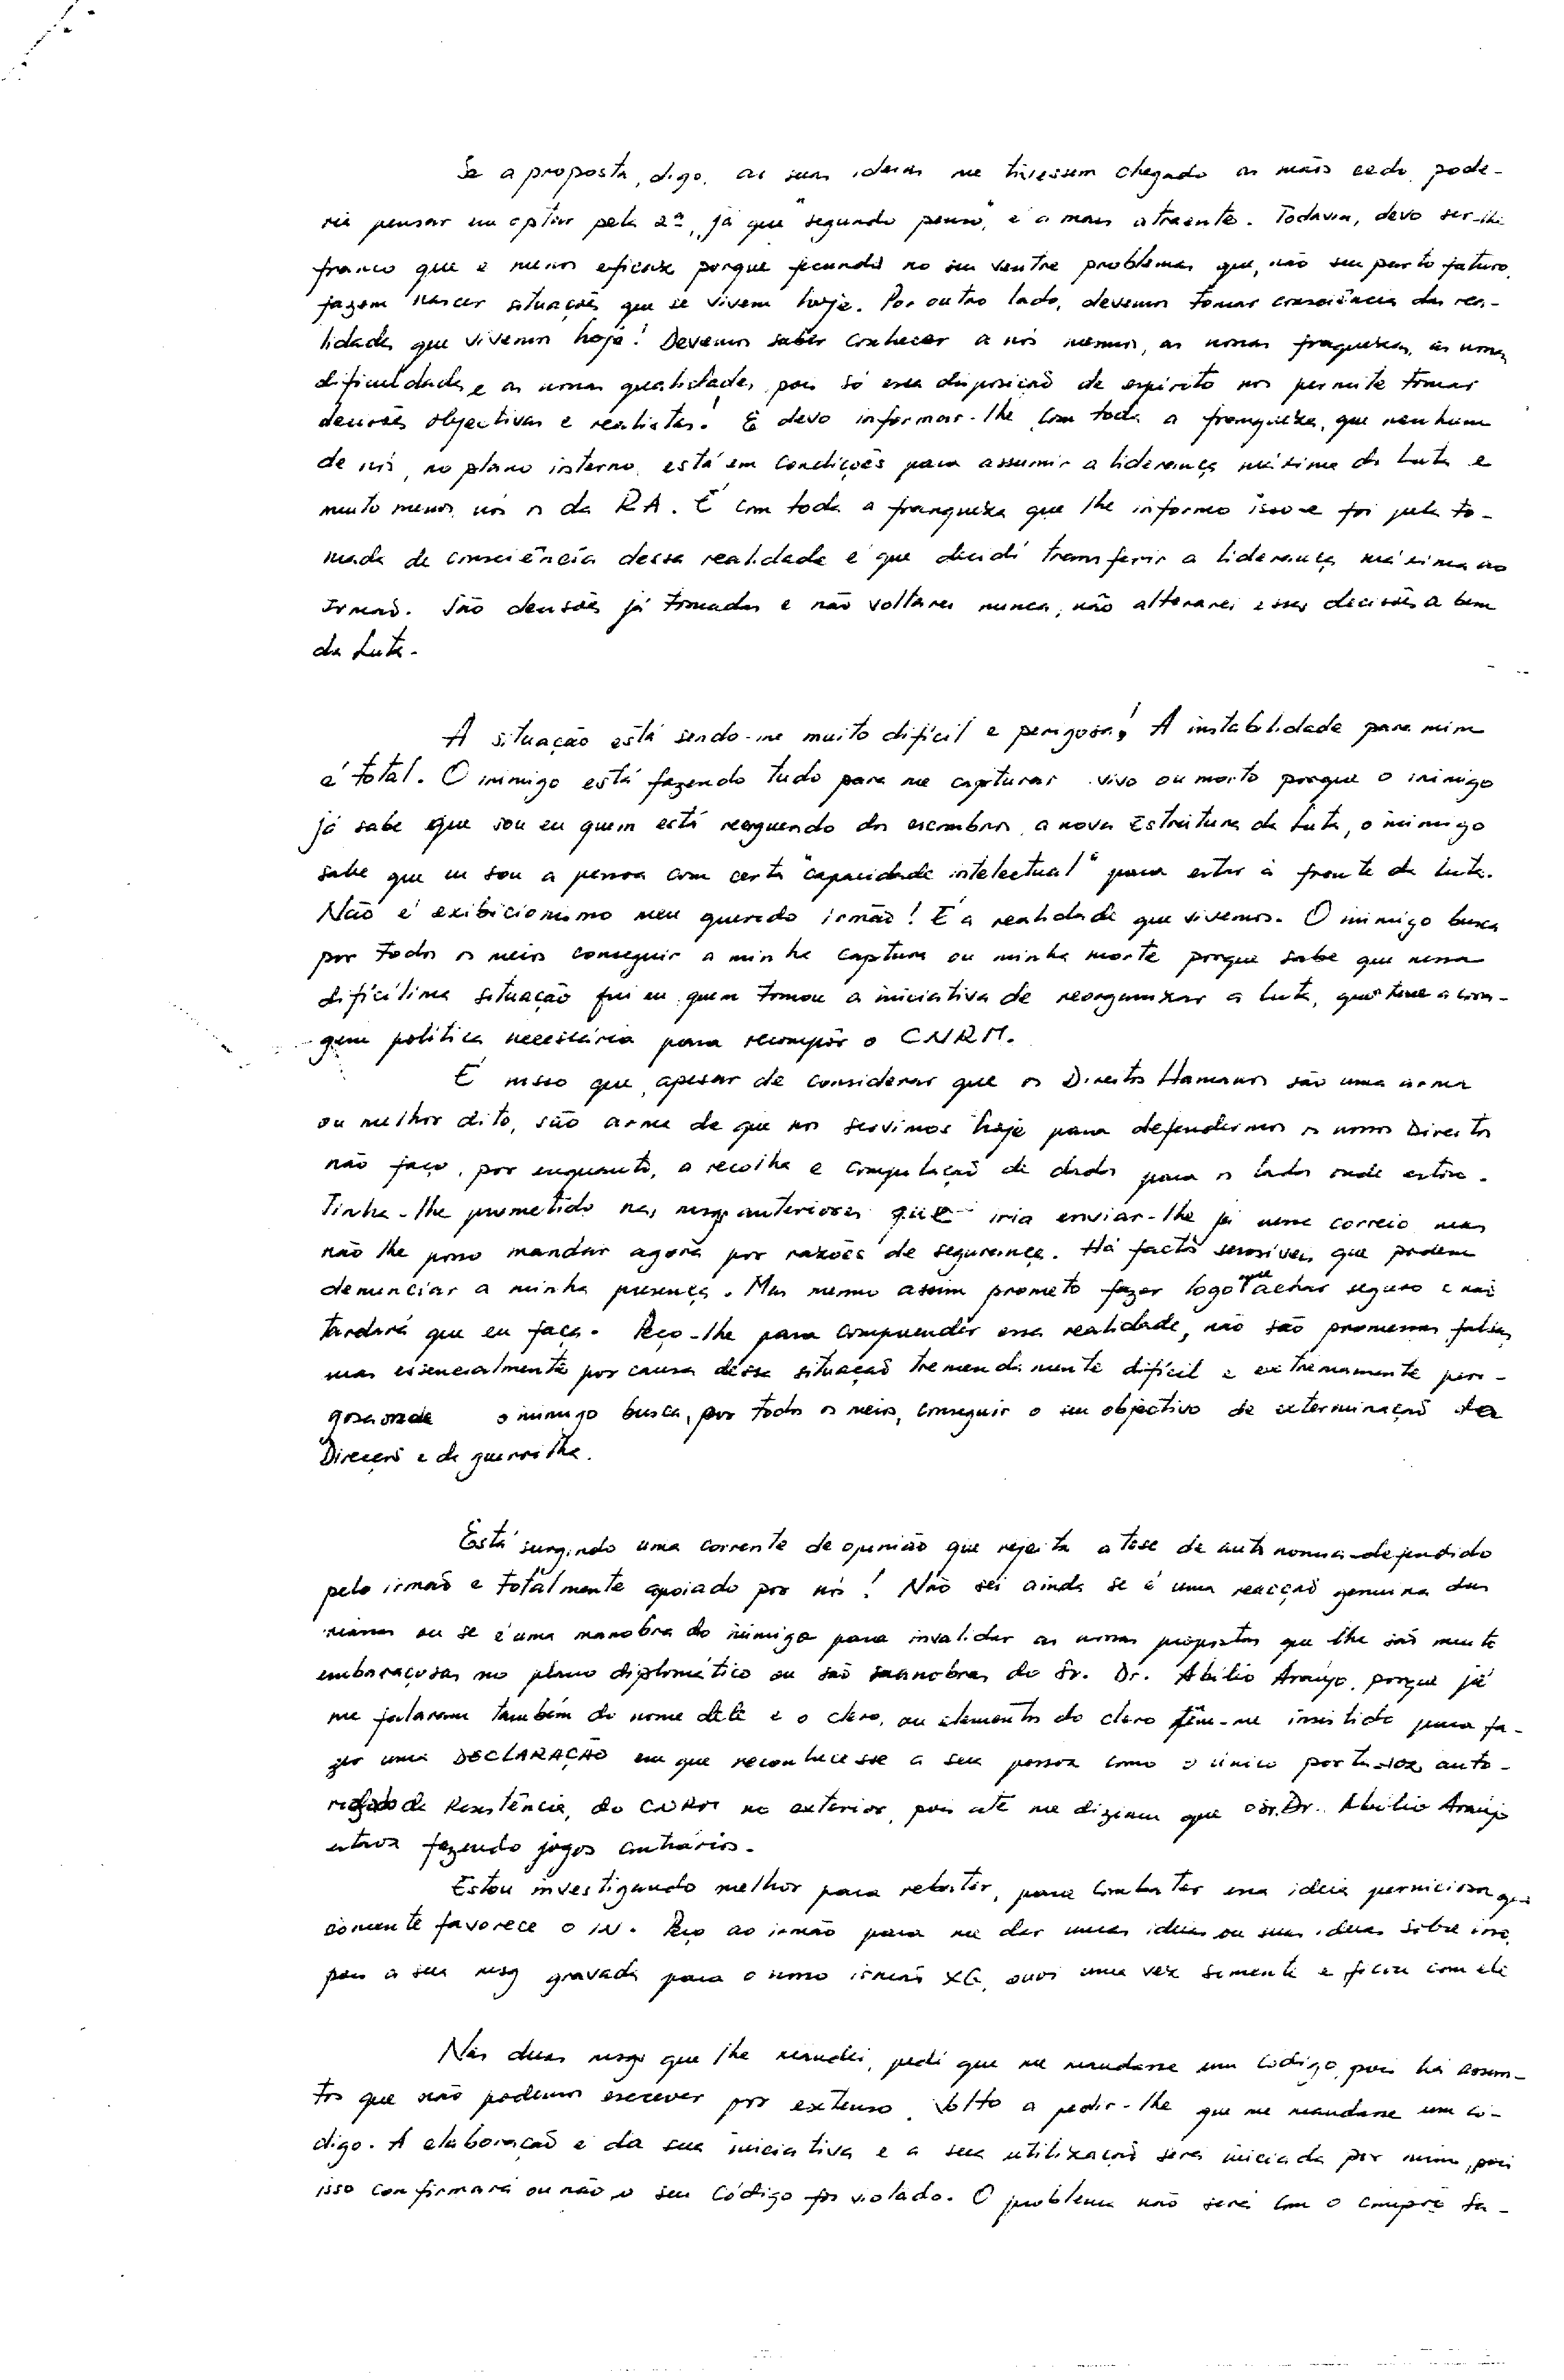 Se a proposta, digo, as suas ideias me tivessem chegado às mãos cedo, pode-
ria pensar em optar pela 2ª, já que "segundo penso", é a mais atraente. Todavia, devo ser-lhe
franco que é menos eficaz porque fecunda no seu ventre problemas que, não seu parto futuro,
fazem nascer situações que se vivem hoje. Por outro lado, devemos tomar consciência da rea-
lidade que vivemos hoje! Devemos saber conhecer a nós mesmos, as nossas fraquezas, as nossas
dificuldades e as nossas qualidades, pois só essa disposição de espírito nos permite tomar
decisões objectivas e realistas! E devo informar-lhe, com toda a franqueza, que nenhum
de nós, no plano interno, está em condições para assumir a liderança máxima da Luta e
muito menos nós os da RA. É com toda a franqueza que lhe informo isso e foi pela to-
mada de consciência dessa realidade é que decidi transferir a liderança máxima ao
Irmão. São decisões já tomadas e não voltarei nunca, não alterarei essas decisões a bem
da Luta.
A situação está sendo-me muito difícil e perigosa! A instabilidade para mim
é total. O inimigo está fazendo tudo para me capturar vivo ou morto porque o inimigo
já sabe que sou eu quem está reerguendo dos escombros, a nova Estrutura da Luta, o inimigo
sabe que eu sou a pessoa com certa "capacidade intelectual" para estar à frente da Luta.
Não é exibicionismo meu querido irmão! É a realidade que vivemos. O inimigo busca
por todos os meios conseguir a minha captura ou minha morte porque sabe que nessa
dificílima situação fui eu quem tomou a iniciativa de reorganizar a luta, que teve a cora-
gem política necessária para recompôr o CNRM.
É nisso que, apesar de considerar que os Direitos Humanos são uma arma
ou melhor dito, são arma de que nos servimos hoje para defendermos os nossos Direitos
não faço, por enquanto, a recolha e compilação de dados para os lados onde estou.
Tinha-lhe prometido nas msgs anteriores que iria enviar-lhe já nesse correio mas
não lhe posso mandar agora por razões de segurança. Há factos sensíveis que podem
denunciar a minha presença. Mas mesmo assim prometo fazer logo que achar seguro e não
tardará que eu faça. Peço-lhe para compreender essa realidade, não são promessas falsas,
mas essencialmente por causa dessa situação tremendamente difícil e extremamente peri-
gosa onde o inimigo busca, por todos os meios, conseguir o seu objectivo de exterminação da
Direcção e da guerrilha.
Está surgindo uma corrente de opinião que rejeita a tese de autonomia defendido
pelo irmão e totalmente apoiado por nós! Não sei ainda se é uma reacção genuina das
massas ou se é uma manobra do inimigo para invalidar as nossas propostas que lhe são muito
embaraçosas no plano diplomático ou são manobras do Sr. Dr. Abílio Araújo, porque já
me falaram também do nome dele e o clero, ou elementos do clero têm-me insistido para fa-
zer uma DECLARAÇÃO em que reconhecesse a sua pessoa como o único porta-voz auto-
rizado da Resistência, do CNRM no exterior, pois até me diziam que o Sr. Dr. Abílio Araújo
estava fazendo jogos contrários.
Estou investigando melhor para rebater, para combater essa ideia perniciosa que
somente favorece o IN. Peço ao irmão para me dar umas ideias ou suas ideias sobre isso,
pois a sua msg gravada para o nosso irmão XG, ouvi uma vez somente e ficou com ele
Nas duas msgs que lhe mandei, pedi que me mandasse um código, pois há assun-
tos que não podemos escrever por extenso. Volto a pedir-lhe que me mandasse um có-
digo. A elaboração é da sua iniciativa e a sua utilização será iniciada por mim, pois
isso confirmará ou não o seu Código foi violado. O problema não será com o compº Sa-